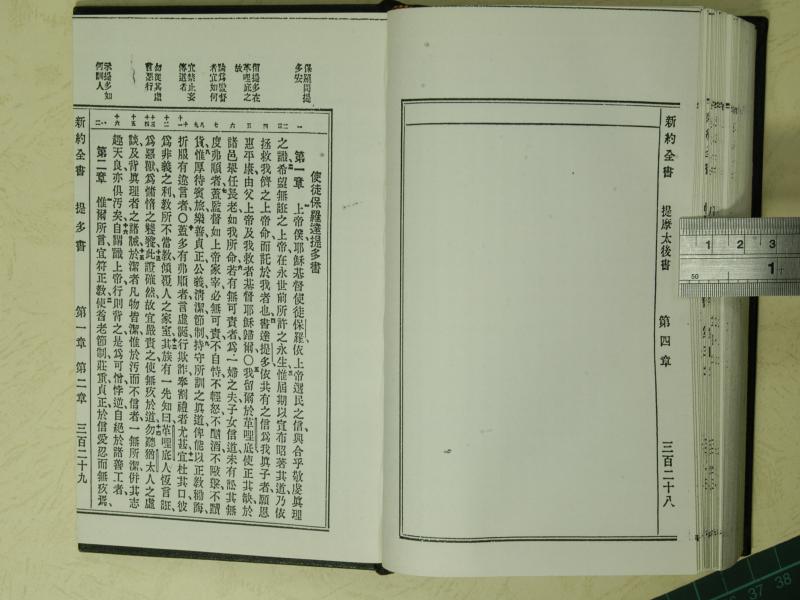 新約全書 提摩太後書 第四章 三百二十八
使徒保羅達提多書
第一章 上帝僕耶穌基督使徒保羅依上帝選民之信與合乎敬虔眞理
之識希望無誑之上帝在永世前所許之永生惟屆期以宣布昭著其道乃依
拯救我儕之上帝命而託於我者也書達提多依共有之信爲我眞子者願恩
惠平康由父上帝及我救者基督耶穌歸爾〇我留爾於革哩底使正其缺於
諸邑舉任長老如我所命若有無可責者爲一婦之夫子女信道未有訟其無
度弗順者蓋監督如上帝家宰必無可責不自恃不輕怒不酗酒不毆擊不黷
貨惟厚待賓旅樂善貞正公義清潔節制持守所訓之眞道俾能以正教勸誨
折服有違言者〇蓋多有弗順者言虛誕行欺詐奉割禮者尤甚宜杜其口彼
爲非義之利教所不當教傾覆人之家室其族有一先知曰革哩底人恆言誑
爲惡獸爲饕惰之 此證確然故宜嚴責之使無疚於道勿聽猶太人之虛
談及背眞理者之誡於潔者凡物皆潔惟於汚而不信者一無所潔併其志
趣天良亦俱汚矣自謂識上帝行則背之是爲可憎悖逆自絕於諸善工者
第二章 惟爾所言宜符正教使耆老節制莊重貞正於信愛忍而無疚
保羅問提多安
留提多在革哩底之故
論爲監督者宜如何
宜禁止妄傳道者
勿從其虛言惡行
示提多如何訓人
新約全書 提多書 第一章 第二章 三百二十九
1 2 3
1
50
37 38